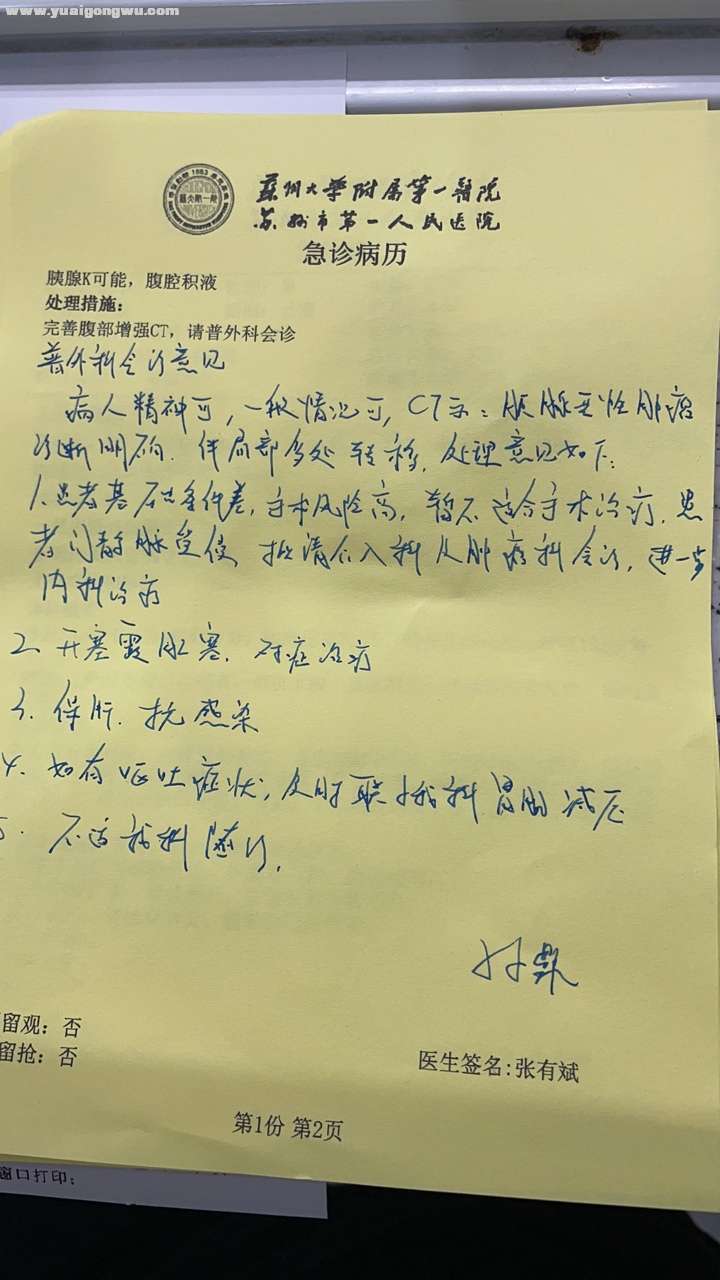 www.yuaigongwu.com
蘇州大学附属第一醫院
苏州市第一人民医院
急诊病历
胰腺K可能，腹腔积液
处理措施：
完善腹部增强CT，请普外科会诊
普外科会诊意见
病人精神可，一般情况可，CT示：胰腺恶性肿瘤
诊断明确．伴局部多处转移．处理意见如下：
1.患者基础条件差，手术风险高，暂不适合手术治疗．患
者门静脉受侵 拟请介入科及肿瘤科会诊，进一步
内科治疗
2. 开塞露肛塞．对症治疗
3. 保肝．抗感染
4. 如有呕吐症状，及时联系我科胃肠减压
5. 不适我科随诊．
留观：否
留抢：否
医生签名:张有斌
第1份 第2页
窗口打印：